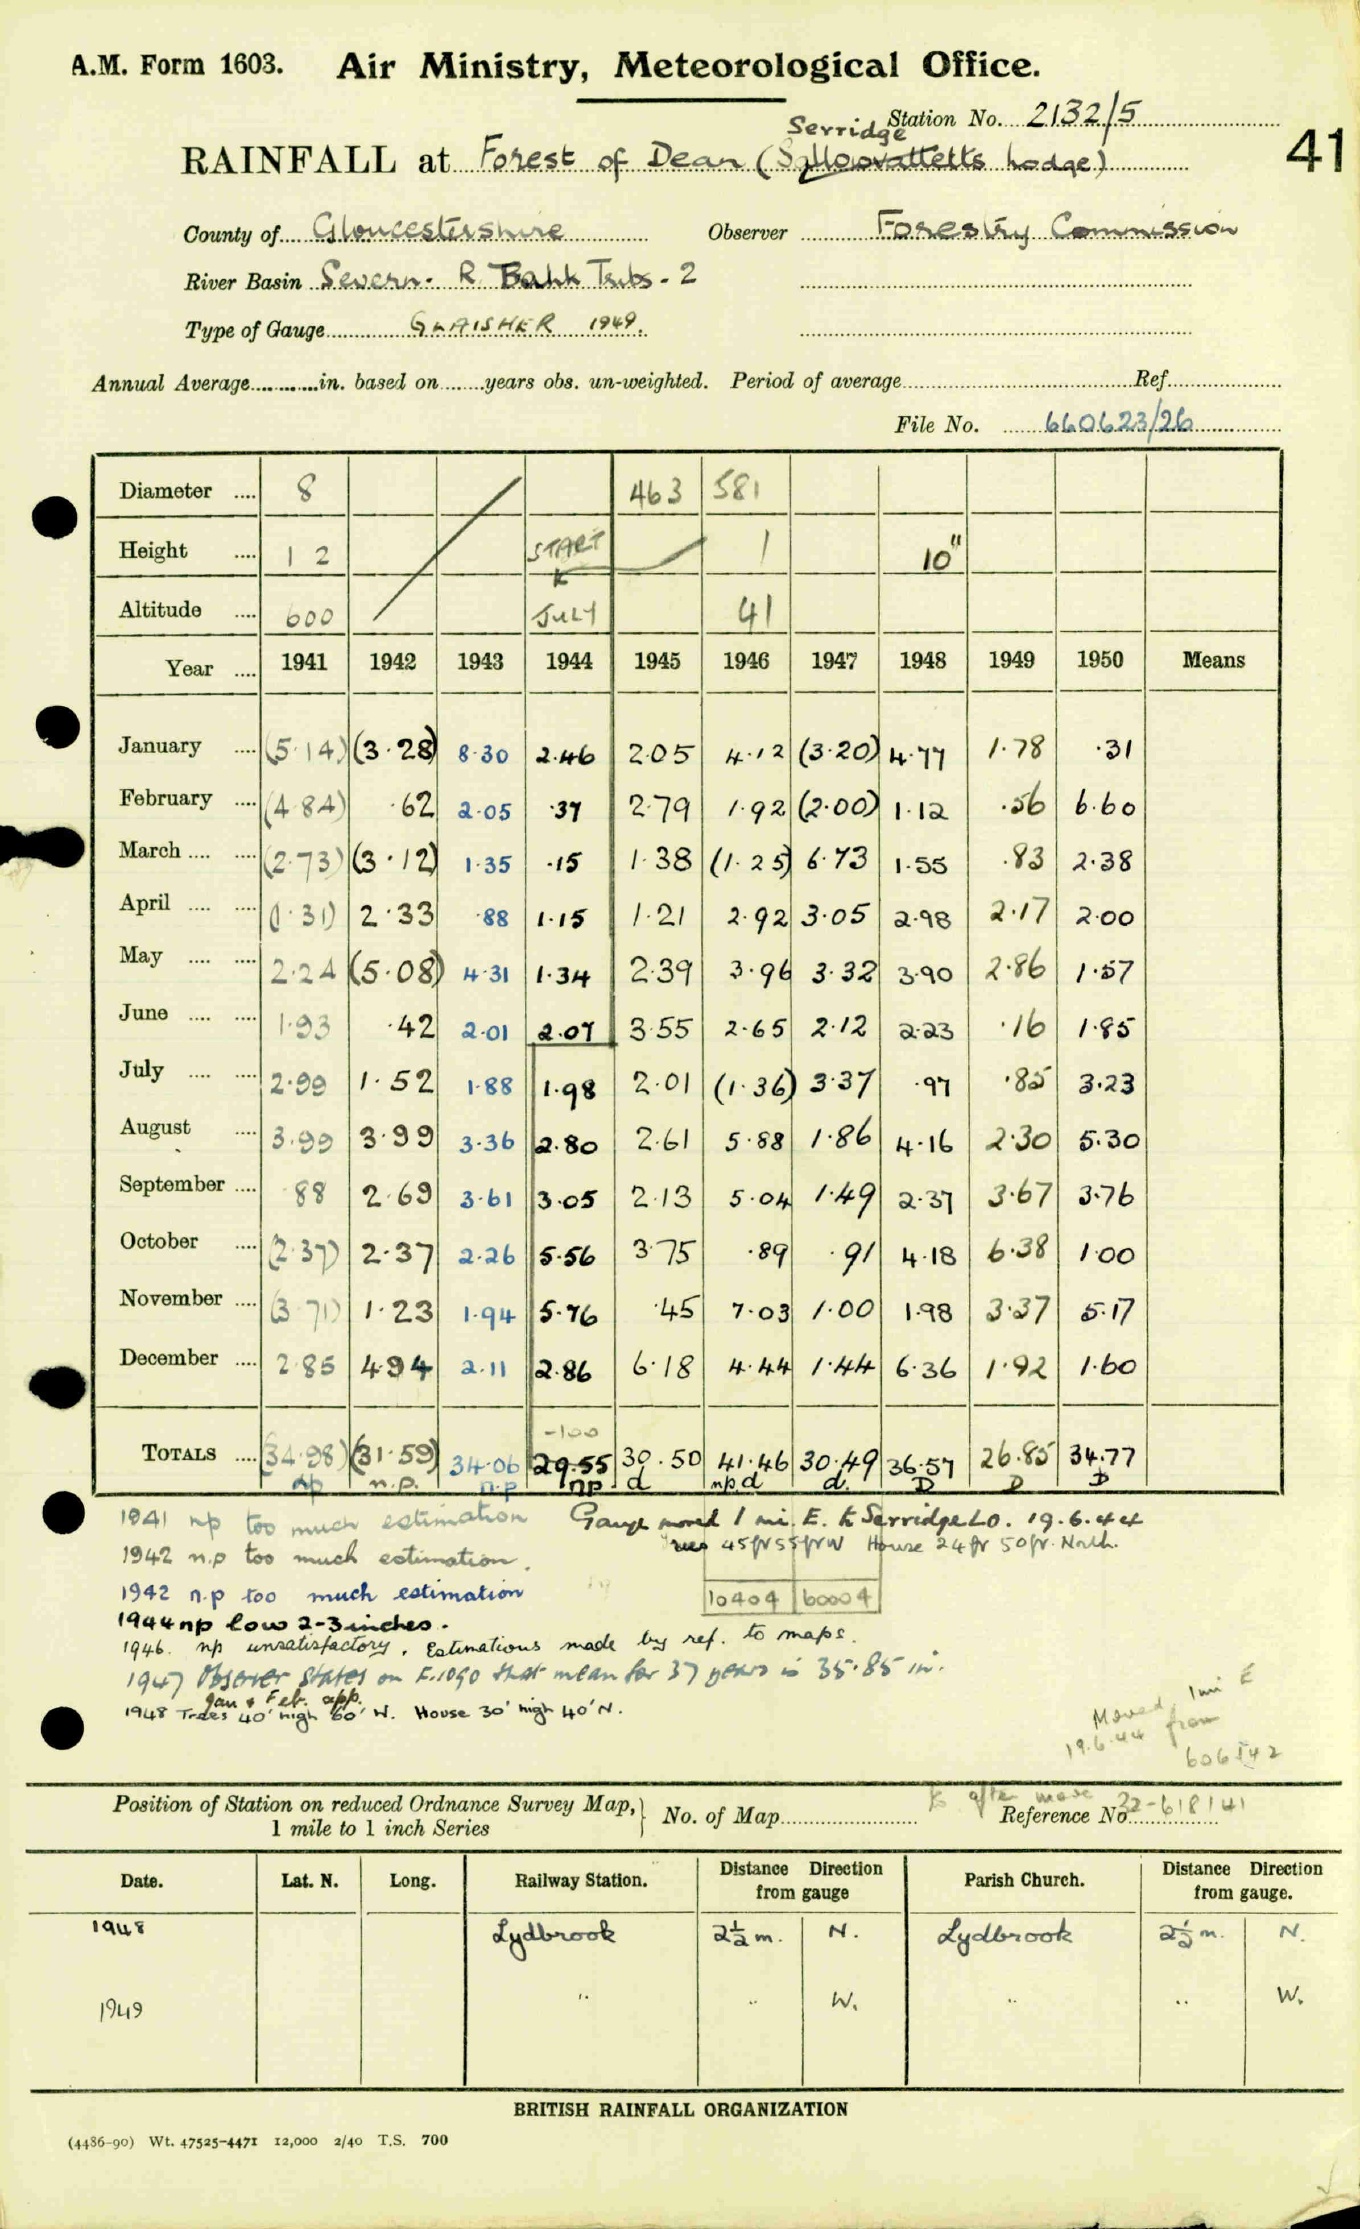 A.M. Form 1603. Air Ministry, Meteorological Office.
Station No. 2132/5
Serridge
41
RAINFALL at Forest of Dean (Sallowvalletts Lodge)
County of Gloucestershire Observer Forestry Commission
River Basin Severn. R. Bank Tribs - 2
Type of Gauge GLAISHER 1949.
Annual Average in. based on years obs. un-weighted. Period of average Ref.
File No. 660623/26
Diameter 8 463 581
Height 12 START 1 10"
Altitude 600 JULY 41
Year 1941 1942 1943 1944 1945 1946 1947 1948 1949 1950 Means
January (5.14) (3.28) 8.30 2.46 2.05 4.12 (3.20) 4.77 1.78 .31
February (4.84) .62 2.05 .37 2.79 1.92 (2.00) 1.12 .56 6.60
March (2.73) (3.12) 1.35 .15 1.38 (1.25) 6.73 1.55 .83 2.38
April (1.31) 2.33 .88 1.15 1.21 2.92 3.05 2.98 2.17 2.00
May 2.24 (5.08) 4.31 1.34 2.39 3.96 3.32 3.90 2.86 1.57
June 1.93 .42 2.01 2.07 3.55 2.65 2.12 2.23 .16 1.85
July 2.99 1.52 1.88 1.98 2.01 (1.36) 3.37 .97 .85 3.23
August 3.99 3.99 3.36 2.80 2.61 5.88 1.86 4.16 2.30 5.30
September .88 2.69 3.61 3.05 2.13 5.04 1.49 2.37 3.67 3.76
October (2.37) 2.37 2.26 5.56 3.75 .89 .91 4.18 6.38 1.00
November (3.71) 1.23 1.94 5.76 .45 7.03 1.00 1.98 3.37 5.17
December 2.85 4.94 2.11 2.86 6.18 4.44 1.44 6.36 1.92 1.60
-100
TOTALS (34.98) (31.59) 34.06 29.55 30.50 41.46 30.49 36.57 26.85 34.77
np n.p. n.p np d np.d d. D D D
1941 np too much estimation Gauge moved 1 mi. E. to Serridge Lo. 19.6.44
1942 n.p too much estimation. 45ft 55ft W House 24ft 50ft. North.
1942 n.p too much estimation 10404 60004
1944 np low 2-3 inches.
1946. np unsatisfactory. Estimations made by ref. to maps.
1947 Observer states on F.1090 that mean for 37 years is 35.85 in.
Jan & Feb. app.
1948 Trees 40' high 60' W. House 30' high 40' N.
Moved 1 mi E
19.6.44 from
606142
after move 32-618141
Position of Station on reduced Ordnance Survey Map, No. of Map Reference No.
1 mile to 1 inch Series
Date. Lat. N. Long. Railway Station. Distance Direction from gauge Parish Church. Distance Direction from gauge.
1948 Lydbrook 2½ m. N. Lydbrook 2½ m. N.
1949 " " W. " " W.
BRITISH RAINFALL ORGANIZATION
(4486-90) Wt. 47525-4471 12,000 2/40 T.S. 700